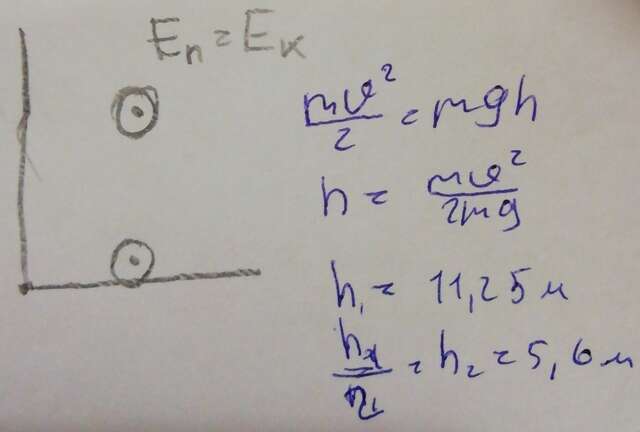 Eп = Eк
mv²/2 = mgh
h = mv²/2mg
h₁ = 11,25 м
= h₂ = 5,6 м